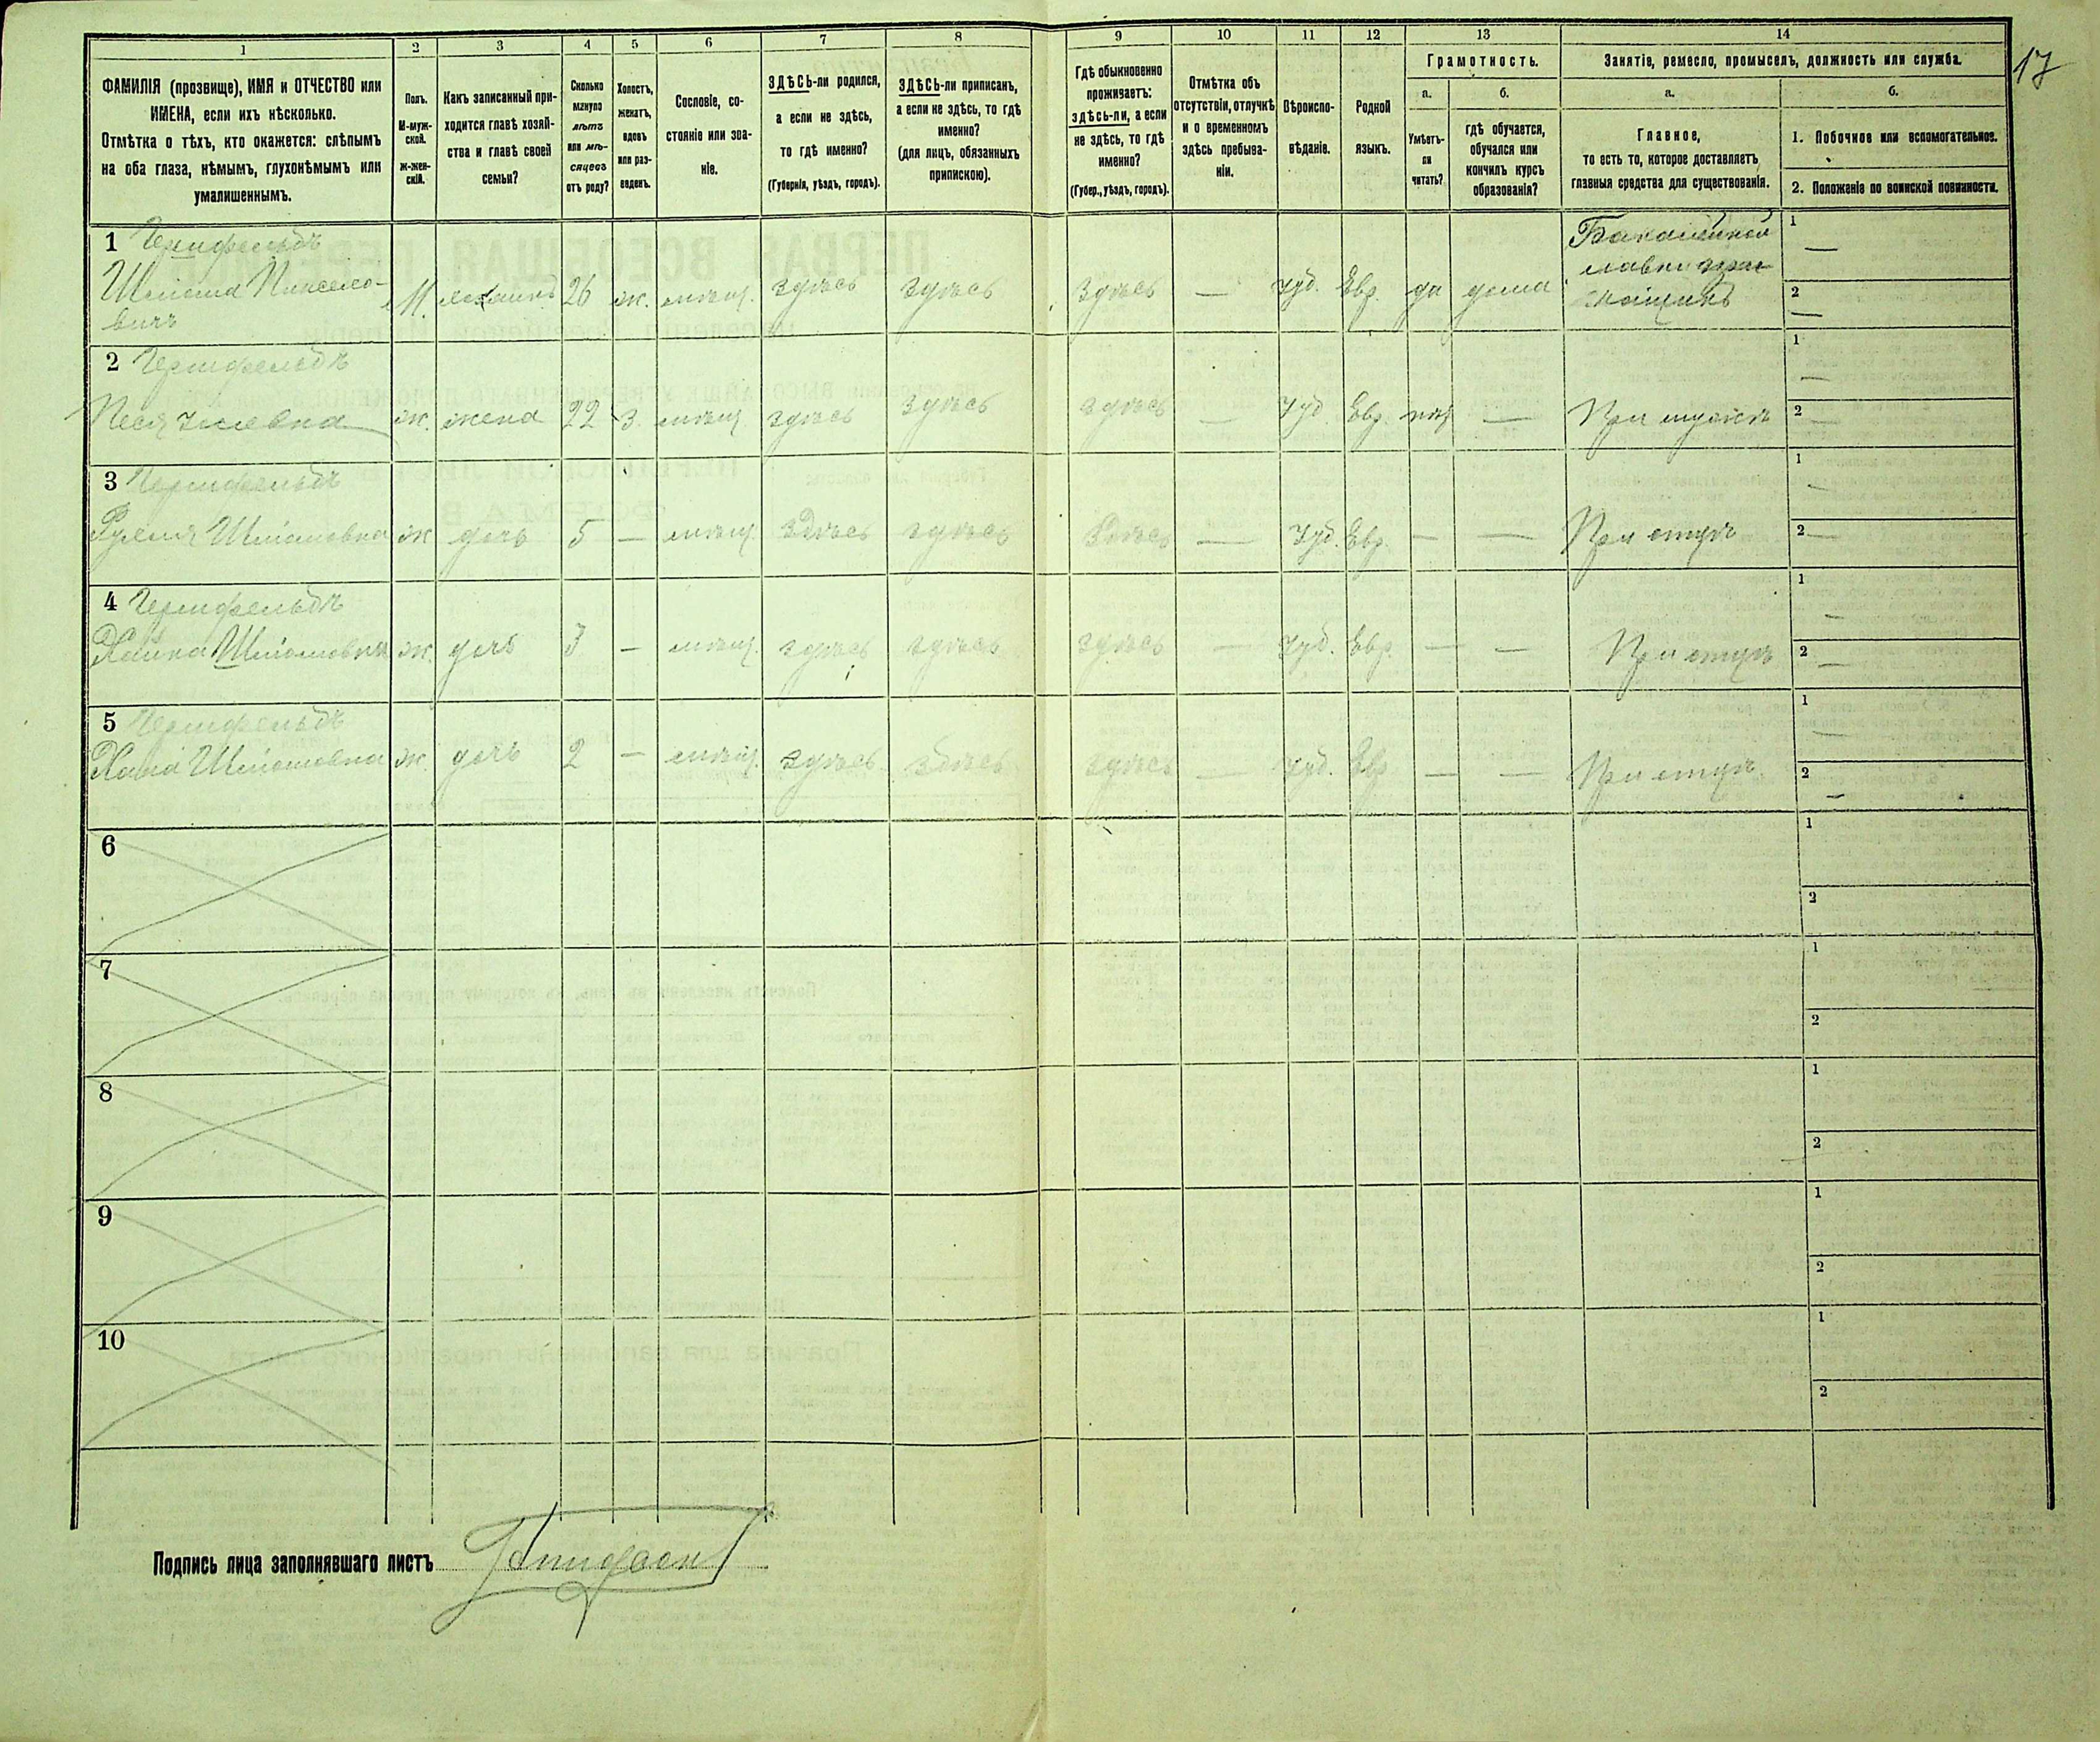 1 2 3 4 5 6 7 8 9 10 11 12 13 14
17
ФАМИЛІЯ (прозвище), ИМЯ и ОТЧЕСТВО или
ИМЕНА, если ихъ нѣсколько.
Отмѣтка о тѣхъ, кто окажется: слѣпымъ
на оба глаза, нѣмымъ, глухонѣмымъ или
умалишеннымъ.
Полъ.
М-муж-
ской.
Ж-жен-
скій.
Какъ записанный при-
ходится главѣ хозяй-
ства и главѣ своей
семьи?
Сколько
минуло
лѣтъ
или мѣ-
сяцевъ
отъ роду?
Холостъ,
женатъ,
вдовъ
или раз-
веденъ.
Сословіе, со-
стояніе или зва-
ніе.
ЗДѢСЬ-ли родился,
а если не здѣсь,
то гдѣ именно?
(Губернія, уѣздъ, городъ).
ЗДѢСЬ-ли приписанъ,
а если не здѣсь, то гдѣ
именно?
(для лицъ, обязанныхъ
припискою).
Гдѣ обыкновенно
проживаетъ:
здѣсь-ли, а если
не здѣсь, то гдѣ
именно?
(Губер., уѣздъ, городъ).
Отмѣтка объ
отсутствіи, отлучкѣ
и о временномъ
здѣсь пребыва-
ніи.
Вѣроиспо-
вѣданіе.
Родной
языкъ.
Грамотность.
а.
Умѣетъ-
ли
читать?
б.
гдѣ обучается,
обучался или
кончилъ курсъ
образованія?
Занятіе, ремесло, промыселъ, должность или служба.
а.
Главное,
то есть то, которое доставляетъ
главныя средства для существованія.
б.
1. Побочное или вспомогательное.
2. Положеніе по воинской повинности.
1
Шлiома
вичъ
М. 26 ж. мѣщ. здѣсь здѣсь здѣсь — Iуд. Евр. да дома
Бакалейной
лавки
1 —
2 —
2
ж. жена 22 з. мѣщ. здѣсь здѣсь здѣсь — Iуд. Евр. нѣт — При мужѣ
1 —
2 —
3
Шлiомовна ж дочь 5 — мѣщ. здѣсь здѣсь здѣсь — Iуд. Евр. — — При отцѣ
1 —
2 —
4
Шлiомовна ж. дочь 3 — мѣщ. здѣсь здѣсь здѣсь — Iуд. Евр. — — При отцѣ
1 —
2 —
5
Шлiомовна ж. дочь 2 — мѣщ. здѣсь здѣсь здѣсь — Iуд. Евр. — — При отцѣ
1 —
2 —
6
1
2
7
1
2
8
1
2
9
1
2
10
1
2
Подпись лица заполнявшаго листъ